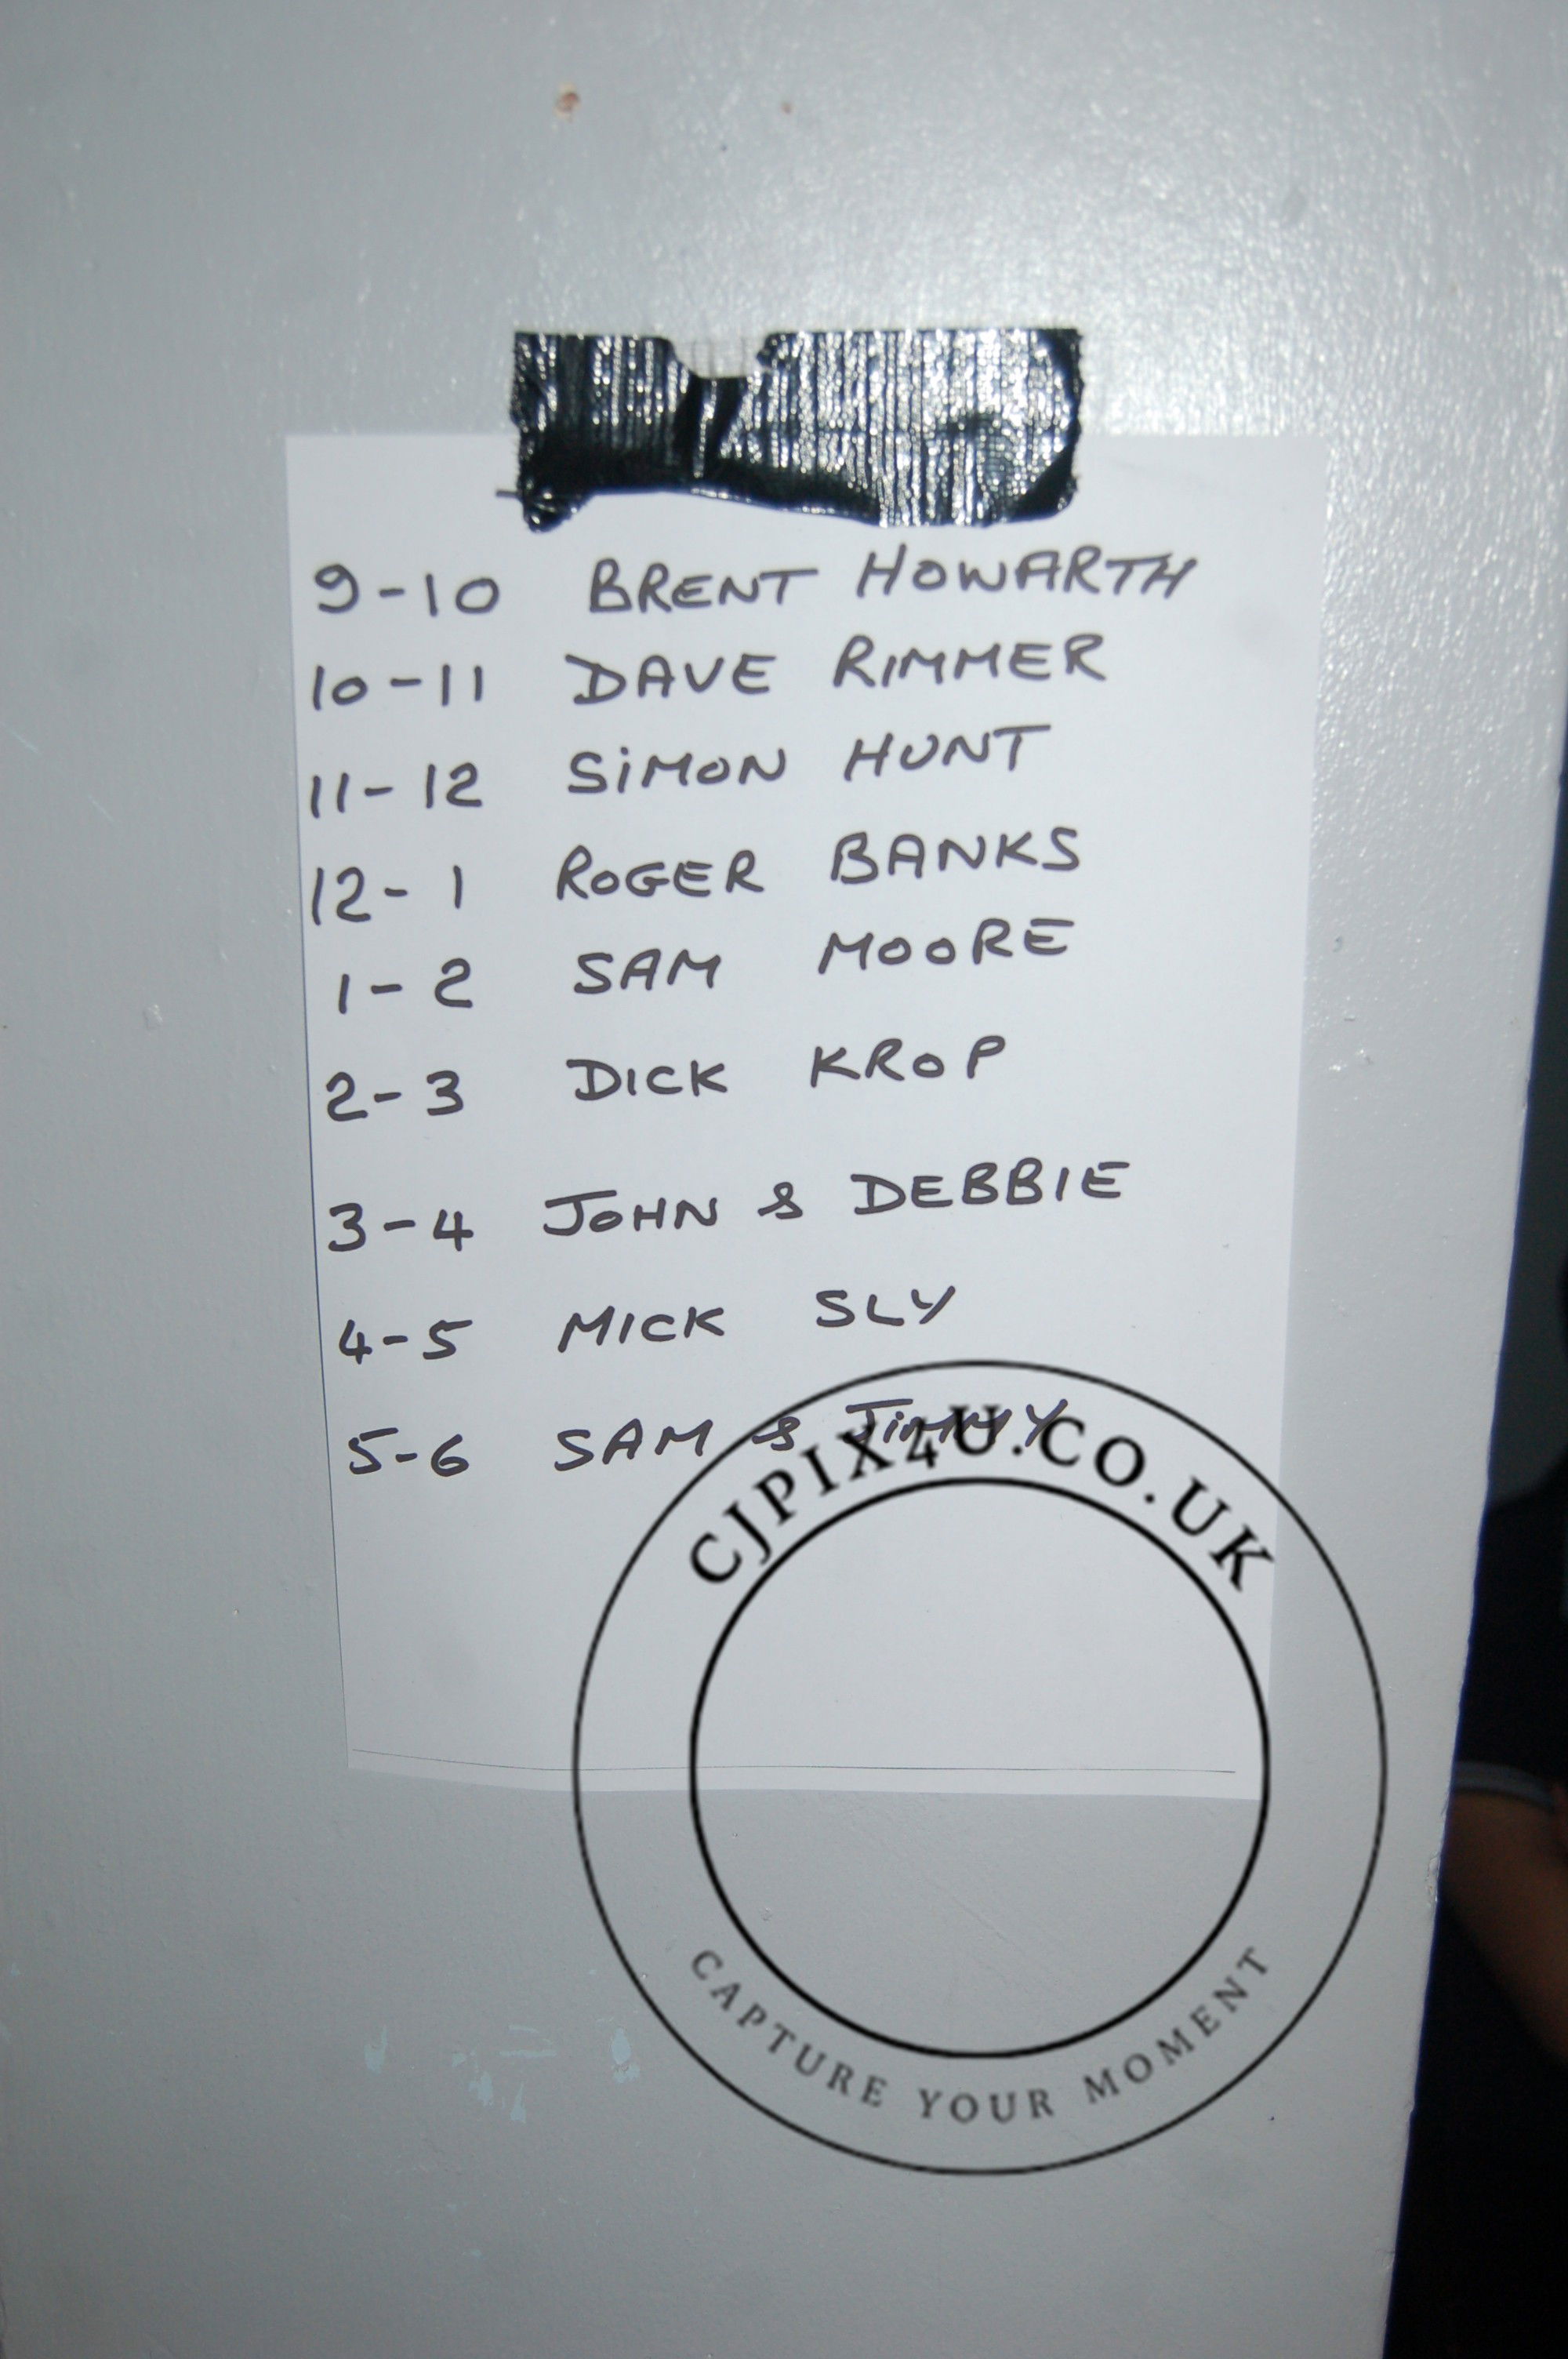 9-10 BRENT HOWARTH
10-11 DAVE RIMMER
11-12 SIMON HUNT
12-1 ROGER BANKS
1-2 SAM MOORE
2-3 DICK KROP
3-4 JOHN & DEBBIE
4-5 MICK SLY
5-6 SAM & JIMMY
CJPIX4U.CO.UK
CAPTURE YOUR MOMENT